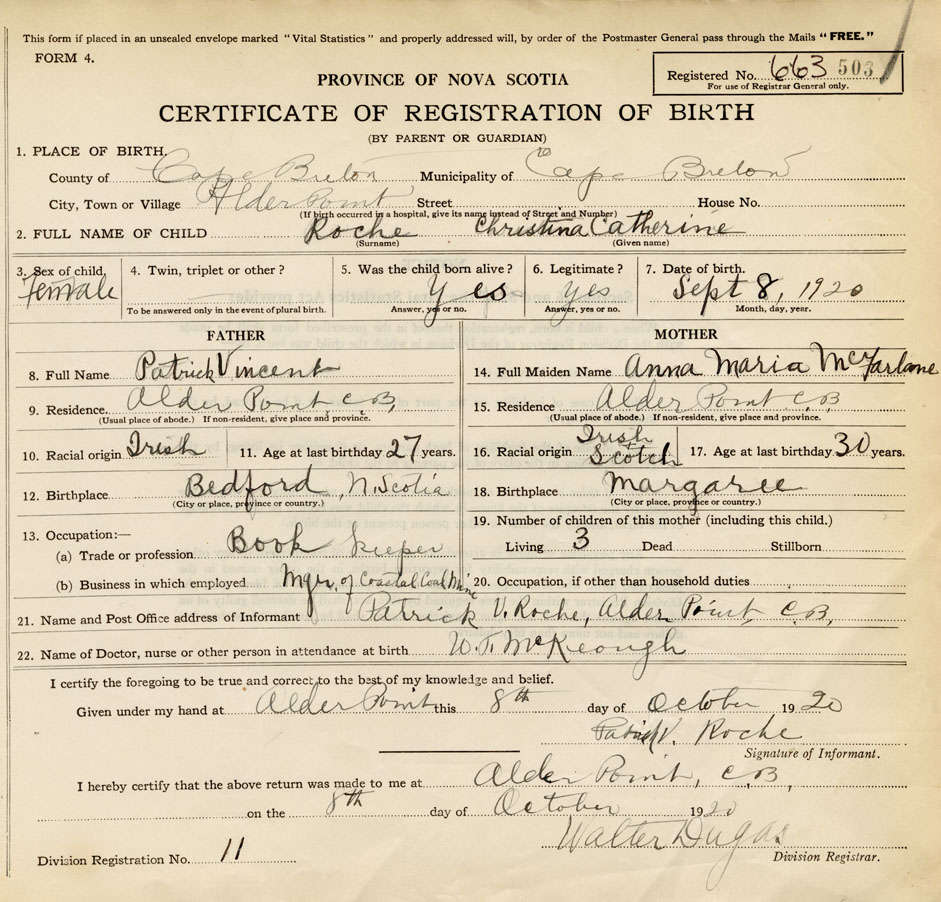 This form if placed in an unsealed envelope marked "Vital Statistics" and properly addressed will, by order of the Postmaster General pass through the Mails "FREE."
FORM 4.
Registered No. 663 503
For use of Registrar General only.
PROVINCE OF NOVA SCOTIA
CERTIFICATE OF REGISTRATION OF BIRTH
(BY PARENT OR GUARDIAN)
1. PLACE OF BIRTH.
County of Cape Breton Municipality of Cape Breton
City, Town or Village Alder Point Street House No.
(If birth occurred in a hospital, give its name instead of Street and Number)
2. FULL NAME OF CHILD Roche Christina Catherine
(Surname) (Given name)
3. Sex of child. 4. Twin, triplet or other? 5. Was the child born alive? 6. Legitimate? 7. Date of birth.
Female Yes Yes Sept 8, 1920
To be answered only in the event of plural birth. Answer, yes or no. Answer, yes or no. Month, day, year.
FATHER MOTHER
8. Full Name Patrick Vincent 14. Full Maiden Name Anna Maria McFarlane
9. Residence. Alder Point C.B, 15. Residence Alder Point C.B
(Usual place of abode.) If non-resident, give place and province. (Usual place of abode.) If non-resident, give place and province.
10. Racial origin Irish 11. Age at last birthday 27 years. 16. Racial origin Irish Scotch 17. Age at last birthday 30 years.
12. Birthplace Bedford, N. Scotia 18. Birthplace Margaree
(City or place, province or country.) (City or place, province or country.)
13. Occupation:— 19. Number of children of this mother (including this child.)
(a) Trade or profession Book keeper Living 3 Dead Stillborn
(b) Business in which employed Mgr. of Coastal Coal Mine 20. Occupation, if other than household duties
21. Name and Post Office address of Informant Patrick V. Roche, Alder Point, C.B,
22. Name of Doctor, nurse or other person in attendance at birth W.T. McKeough
I certify the foregoing to be true and correct to the best of my knowledge and belief.
Given under my hand at Alder Point this 8th day of October 1920
Patrick V. Roche
Signature of Informant.
I hereby certify that the above return was made to me at Alder Point, C.B,
on the 8th day of October 1920
Walter Dugas
Division Registrar.
Division Registration No. 11